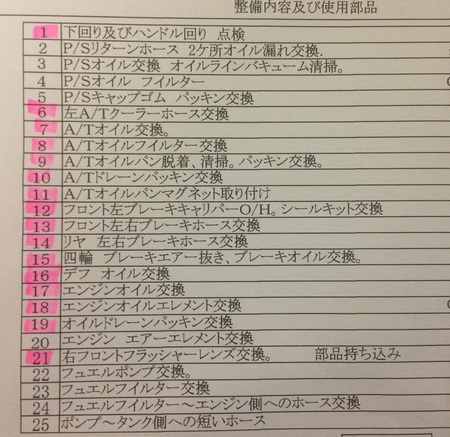 整備内容及び使用部品
1 下回り及びハンドル回り 点検
2 P/Sリターンホース 2ケ所オイル漏れ交換.
3 P/Sオイル交換 オイルラインバキューム清掃。
4 P/Sオイル フィルター
5 P/Sキャップゴム パッキン交換
6 左A/Tクーラーホース交換
7 A/Tオイル交換。
8 A/Tオイルフィルター交換
9 A/Tオイルパン脱着、清掃。パッキン交換。
10 A/Tドレーンパッキン交換
11 A/Tオイルパンマグネット取り付け
12 フロント左ブレーキキャリパーO/H。シールキット交換
13 フロント左右ブレーキホース交換
14 リヤ 左右ブレーキホース交換
15 四輪 ブレーキエアー抜き、ブレーキオイル交換。
16 デフ オイル交換
17 エンジンオイル交換
18 エンジンオイルエレメント交換
19 オイルドレーンパッキン交換
20 エンジン エアーエレメント交換
21 右フロントフラッシャーレンズ交換。 部品持ち込み
22 フュエルポンプ交換。
23 フュエルフイルター交換
24 フュエルフイルター～エンジン側へのホース交換
25 ポンプ～タンク側への短いホース